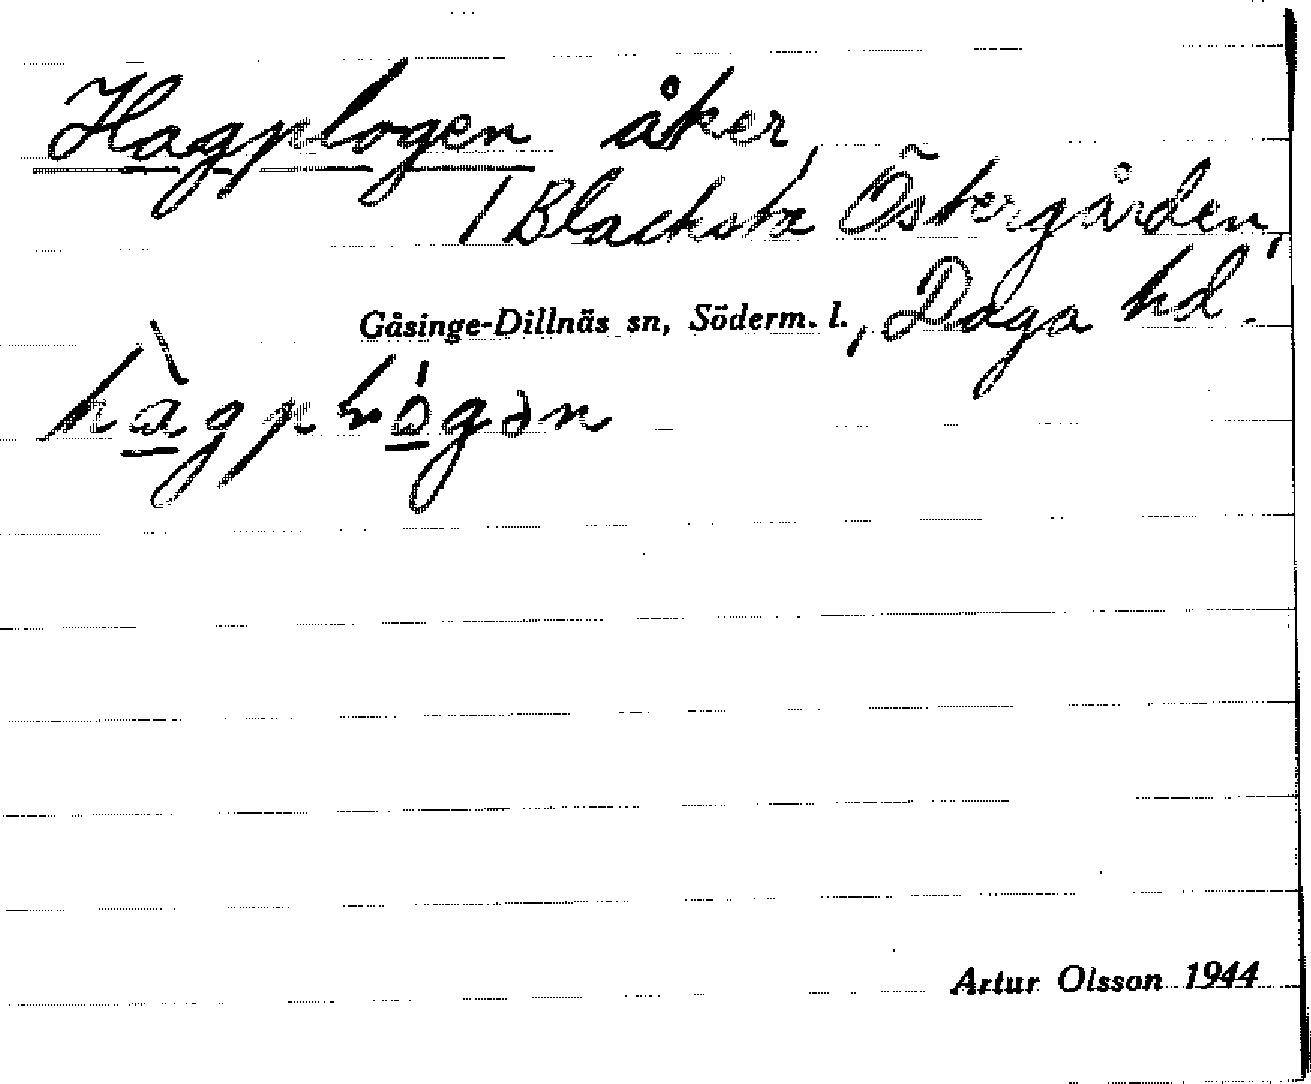 Hagplogen åker
/ Blacksta Östergården,
Gåsinge-Dillnäs sn, Söderm. l., Daga hd.
Artur Olsson 1944